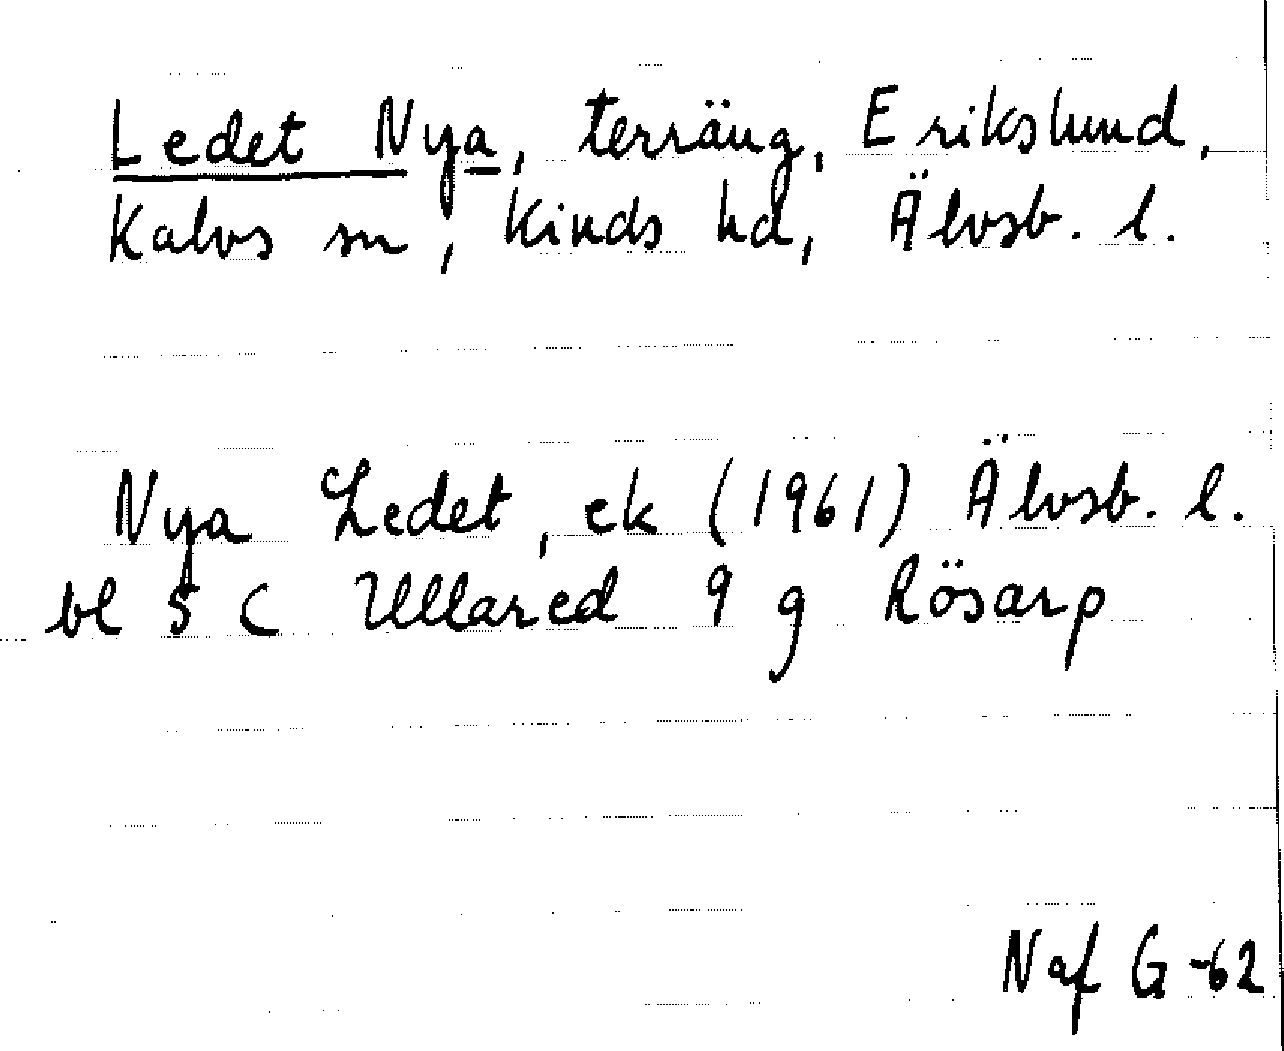 Ledet Nya, terräng, Erikslund,
Kalvs sn, Kinds hd, Älvsb. l.
Nya Ledet, ek (1961) Älvsb. l.
bl 5 C Ullared 9 g Rösarp
Naf G -62